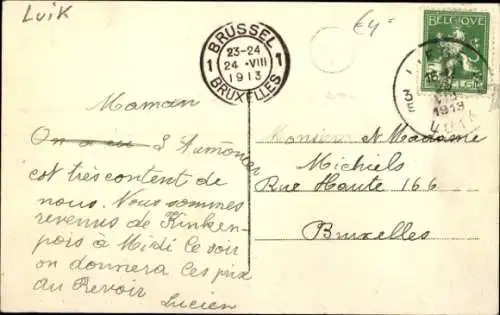 Luik
€4-
BRUSSEL
1 23-24 1
24 · VIII
1913
BRUXELLES
BELGIQUE
5
1913
Maman
On a eu S L'aumônier
est très content de
nous. Nous sommes
revenus de Kinken-
pois à Midi Ce soir
on donnera les prix
au Revoir
Lucien
Monsieur et Madame
Michiels
Rue Haute 166
Bruxelles